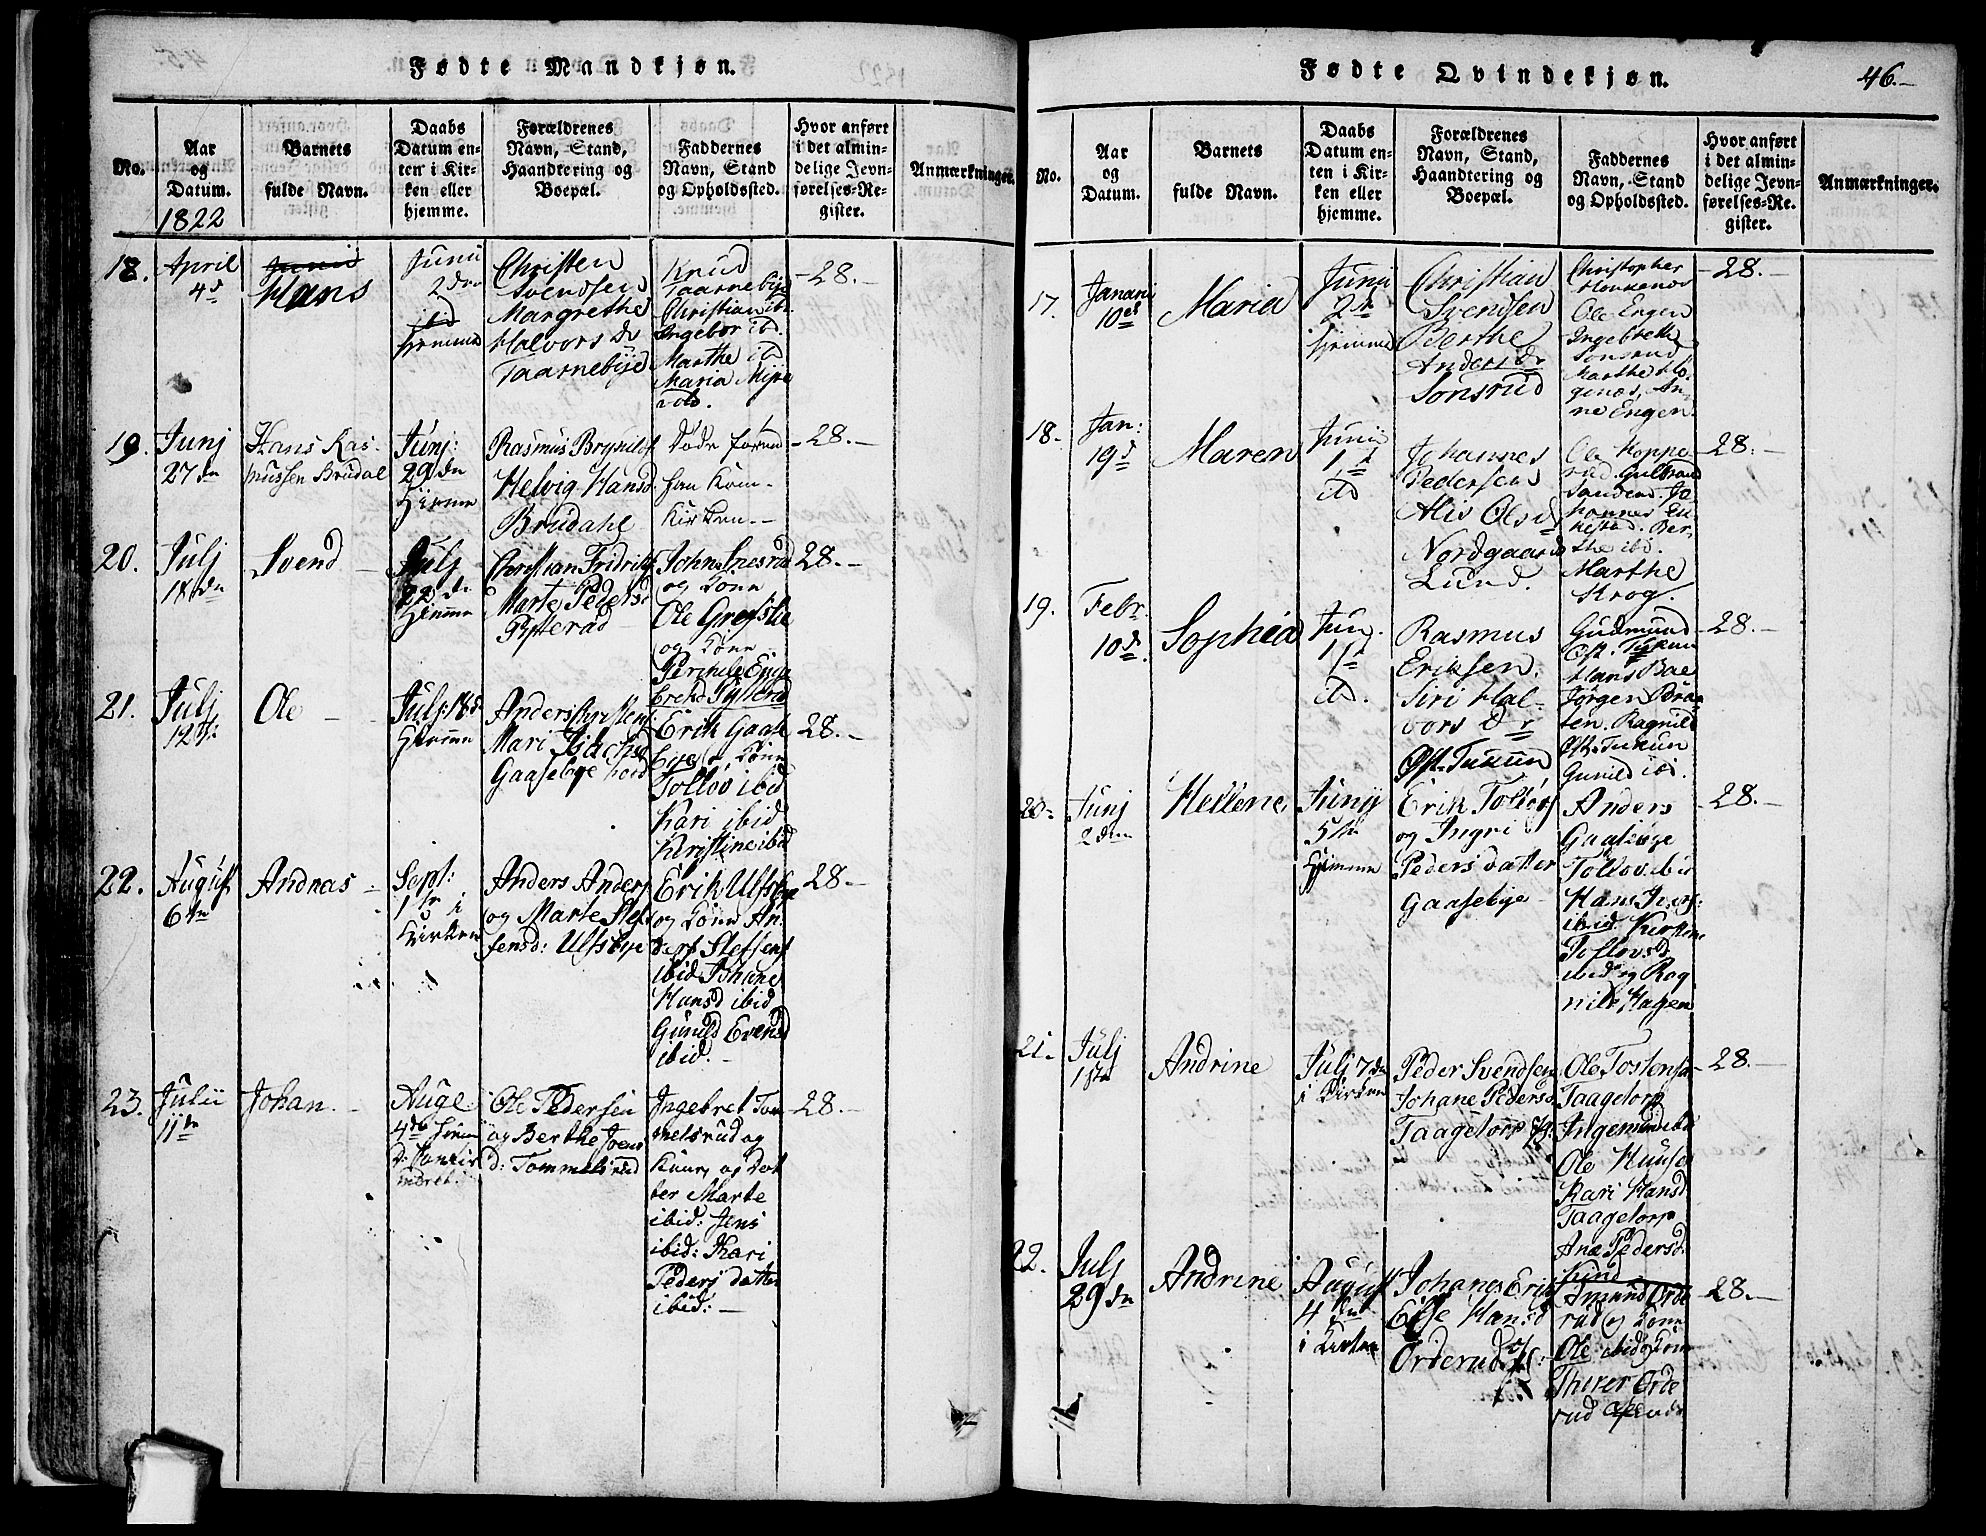 Fødte Mandkjøn.
No.
Aar
og
Datum.
1822
Barnets
fulde Navn.
Daabs
Datum en-
ten i Kir-
ken eller
hjemme.
Forældrenes
Navn, Stand,
Haandtering og
Boepæl.
Faddernes
Navn, Stand
og Opholdssted.
Hvor anført
i det almin-
delige Jevn-
førelses-Re-
gister.
Anmærkninger.
18.
April
4d
Hans
Junii
2den
ibid
hjemme
Christen
Svendsen
Margrethe
Halvors dr
Taarnebye
Knud
Taarnebye
Christian ib.
Ingebor ib.
Marthe ib
Maria Myre
28.
19.
Junj
27dn
Hans Ras-
mussen Brudal
Junj:
29dn
Hjemme
Rasmus Brynilds
Helvig Hansd.
Brudahl
Døde førend
han kom
Kirken.
28.
20.
Julj
18dn
Svend
Julj
22dn
Hjemme
Christian Fridriks
Marte Peders
Pytterud
John
og Kone
Ole
og Kone
28.
21.
Julj
12te
Ole
Julj: 18d
Hjemme
Anders
Mari
Gaasebye
Erik Gaase
bye og Kone
Tollov ibid
Kari ibid
Kirstine ibid
28.
22.
August
6te
Andreas
Sept:
1te i
Kirken
Anders Anders
og Marte Stef
fensd: Ulfsbye
Erik Ulfsbye
og Kone An
ders Steffens
ibid Johane
Hansd ibid
Gunild Evensd
ibid.
28.
23.
Julii
11te
Johan.
Auge
4de
Ole Pedersen
og Berthe Jens
d: Tommelsrud
Ingebret Tom
melsrud og
Kone, og Dat
ter Marte
ibid: Jens
ibid: Kari
Peders datter
ibid:
28.
Fødte Qvindekjøn.
46.
No.
Aar
og
Datum.
Barnets
fulde Navn.
Daabs
Datum en-
ten i Kir-
ken eller
hjemme.
Forældrenes
Navn, Stand,
Haandtering og
Boepæl.
Faddernes
Navn, Stand
og Opholdssted.
Hvor anført
i det almin-
delige Jevn-
førelses-Re-
gister.
Anmærkninger.
17.
Januari
10de
Maria
Junij
2d
hjemme
Christian
Svendsen
Berthe
Anders Dr
Sonsrud
Christopher
Ole Engen
Ingebrethe
Sonsrud
Marthe Ho-
genæs, An-
ne Engen.
28.
18.
Jan:
19d
Maren
Junii
1d
Johannes
Pedersen
Alis Olsd
Nordgaards
Lund.
Ole Hoppe
rud. Gulbrand
Sanden. Jo
hannes
Ber-
the ibi.
Marthe
Krog.
28.
19.
Febr.
10d.
Sophia
Jun.
1d
Rasmus
Eriksen.
Siri Hal-
vors dr
Øst. Tukun
Gudmund
Øst. Tukun
Hans Bae
Jørgen Braa
ten. Ragnild
Øst. Tukun
Gunild ibi.
28.
20.
Junj
2den
Hellene
Junij
5te
Hjemme
Erik Tollovs
og Ingri
Peders datter
Gaasebye
Anders
Gaasebye
Tollov ibid
Hans
ibid: Kirstine
Tollovsd
ibid og Rag
nild Hagen
28.
21.
Julj
1ste
Andrine
Julj 7de
i Kirken
Peder Svendsen
Johane Pedersd
Taagetorp
Ole Tostensen
Taagetorp
Ingemund ibi
Ole
Kari Hansd
Taagetorp
Ane Pedersd.
28.
22.
Julj
29dn
Andrine
August
4de
i Kirken
Johanes Erik
Else Hansd
Orderud
Amund Orde
rud og Kone
Ole ibid
Orde
rud
28.